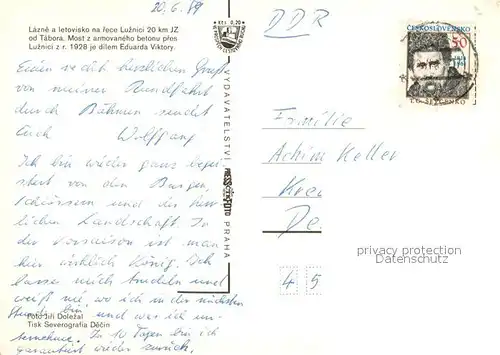 20.6.89
Lázně a letovisko na řece Lužnici 20 km JZ
od Tábora. Most z armovaného betonu přes
Lužnici z r. 1928 je dílem Eduarda Viktory.
Einen recht herzlichen Gruß
von meiner Rundfahrt
durch Böhmen sendet
Euch Wolfgang
Ich bin wieder ganz begei-
stert von den Burgen,
Schlössern und der herr-
lichen Landschaft. In
der Vorsaison ist man
hier wirklich König. Ich
lasse mich trudeln und
weiß nie, wo ich in der nächsten
Stunde bin und was ich un-
ternehme. In 10 Tagen bin ich
garantiert wieder zurück.
Foto Jiří Doležal
Tisk Severografia Děčín
Kčs 0,20
VYDAVATELSTVÍ
PRESSFOTO
PRAHA
DDR
ČESKOSLOVENSKO
50
T. G. ŠEVČENKO
Familie
Achim Keller
De
45
privacy protection
Datenschutz